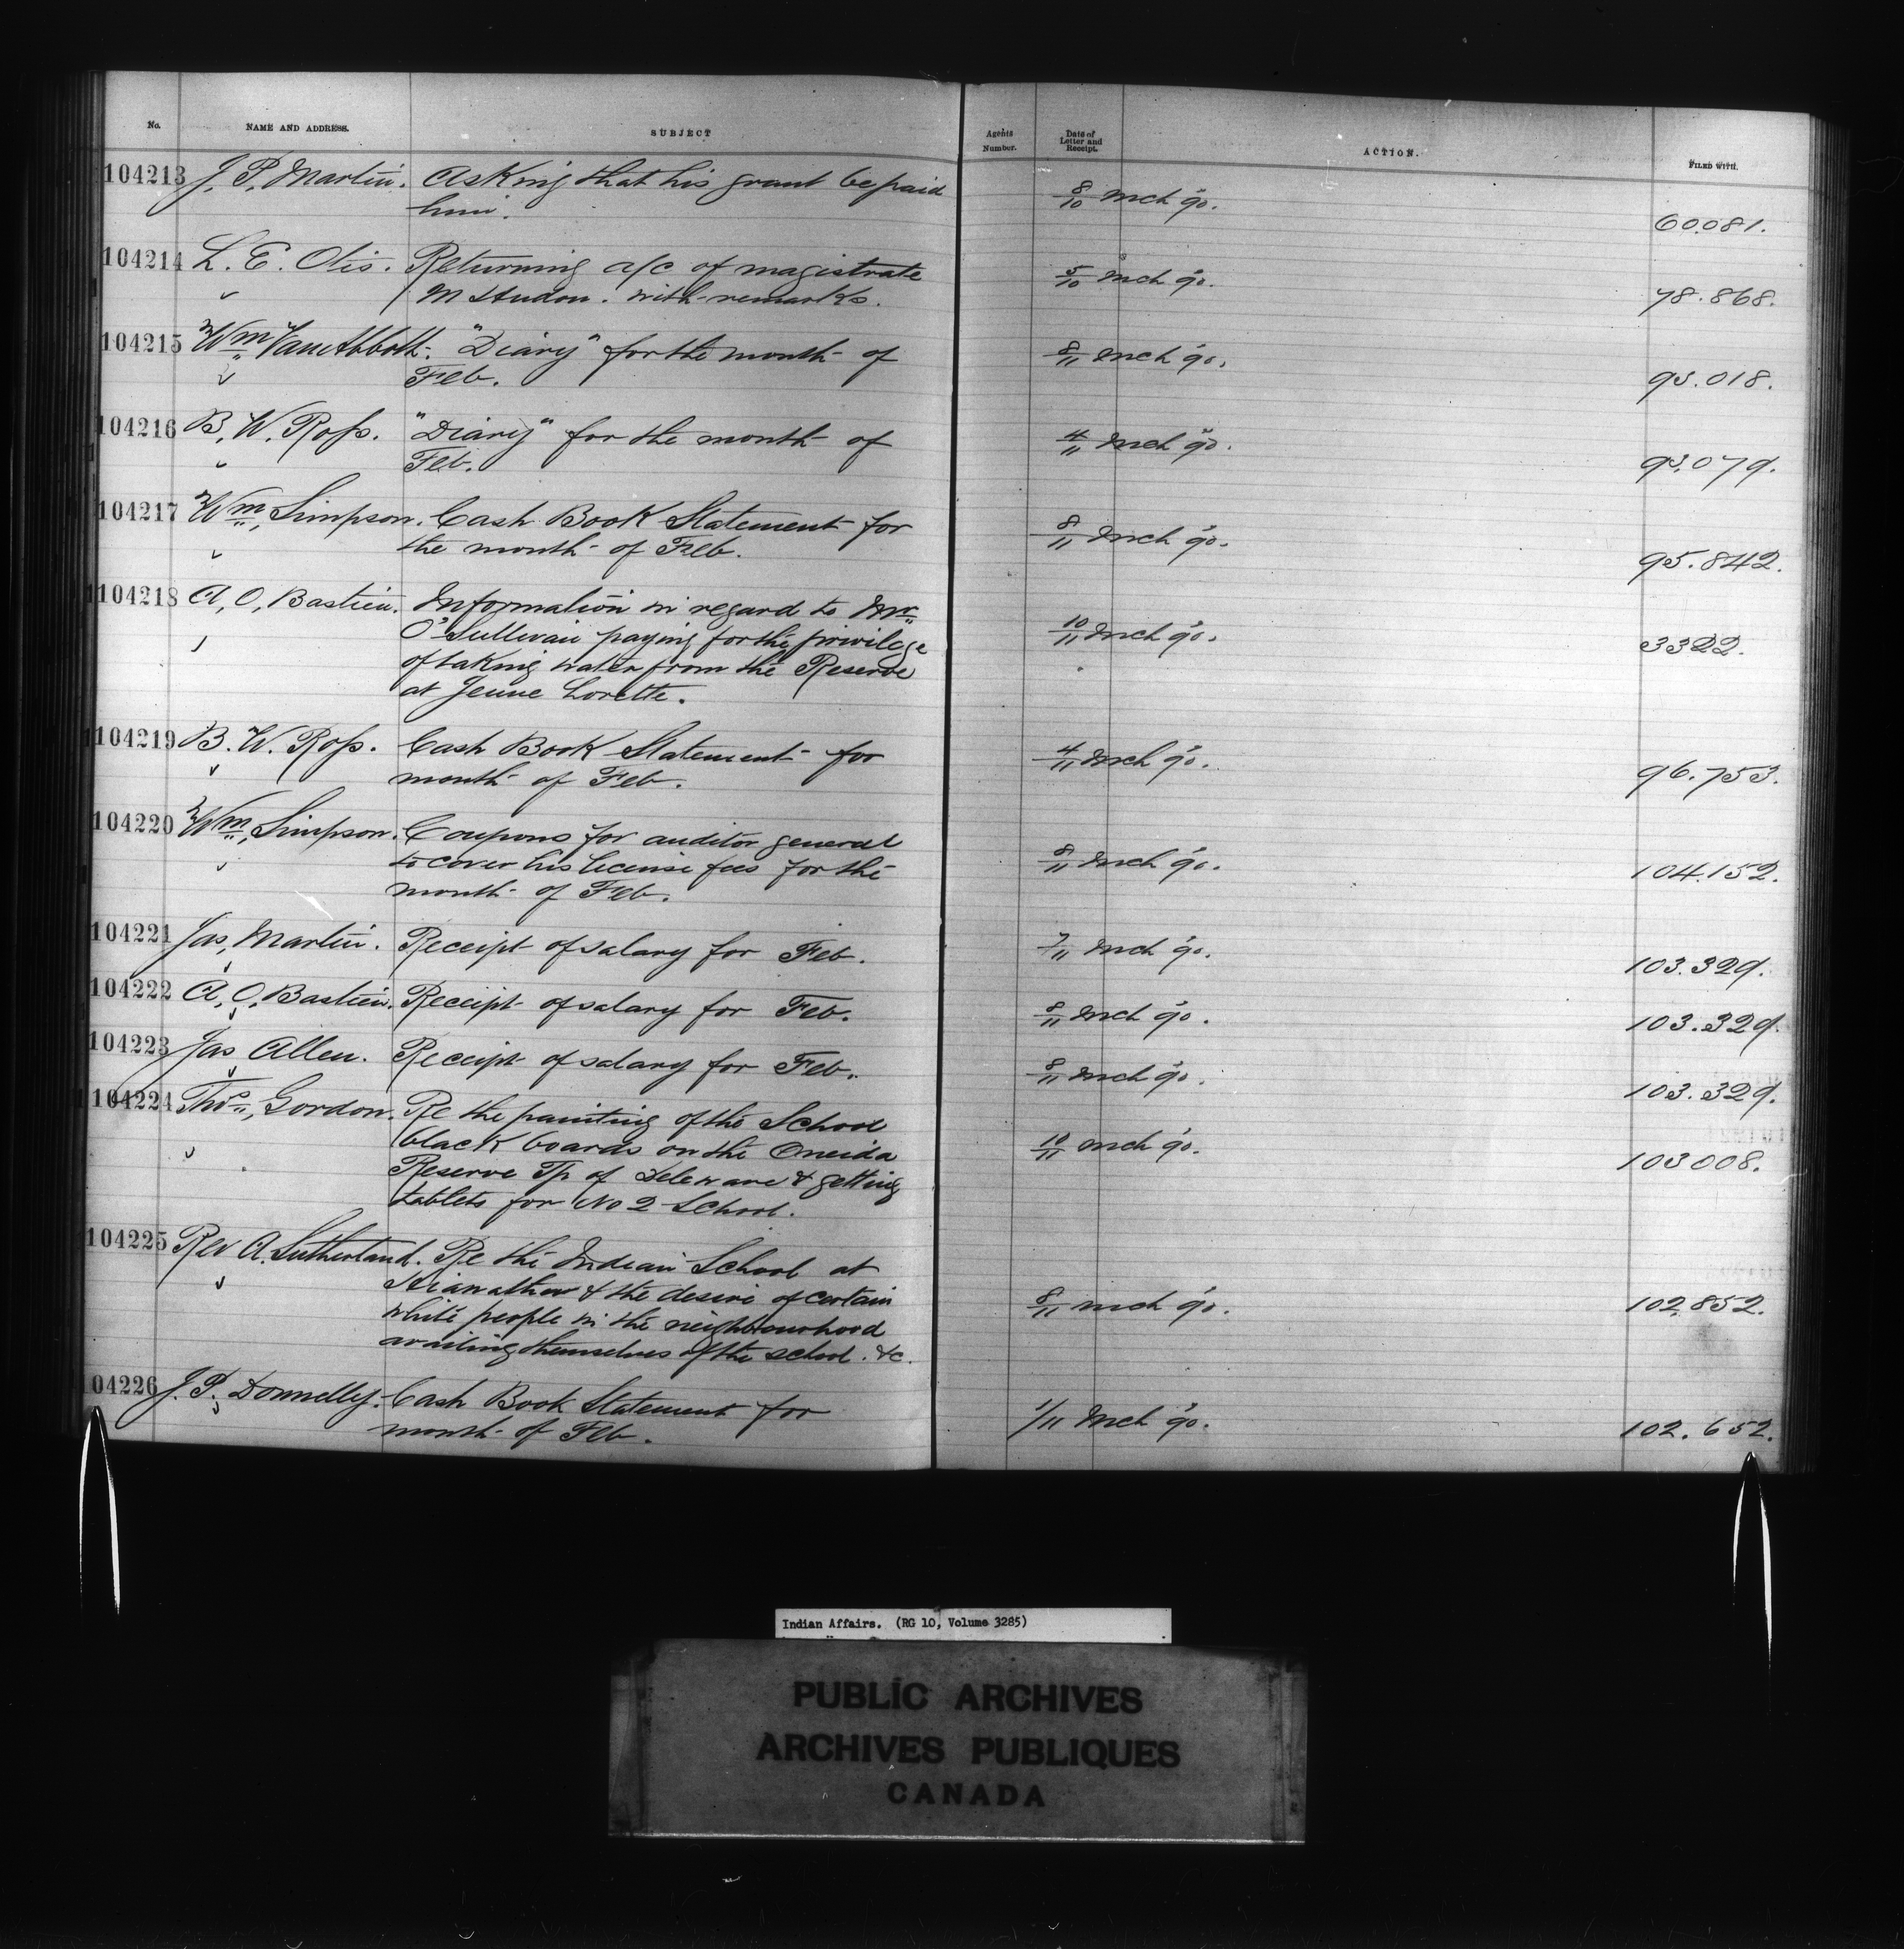 No. NAME AND ADDRESS. SUBJECT Agents Number. Date of Letter and Receipt. ACTION. FILED WITH.
104213 J. P. Martin. Asking that his grant be paid
him. 8/10 Mch 90. 60081.
104214 L. E. Otis. Returning a/c of magistrate
M Hudon. with remarks. 5/10 Mch 90. 78.868.
104215 Wm Van Abbott. "Diary" for the month of
Feb. 8/11 Mch 90. 93.018.
104216 B. W. Ross. "Diary" for the month of
Feb. 4/11 Mch 90. 93.079.
104217 Wm Simpson. Cash Book Statement for
the month of Feb. 8/11 Mch 90. 95.842.
104218 A. O. Bastien. Information in regard to Mr
O'Sullivan paying for the privilege
of taking water from the Reserve
at Jeune Lorette. 10/11 Mch 90. 3322.
104219 B. W. Ross. Cash Book Statement for
month of Feb. 4/11 Mch 90. 96.753.
104220 Wm Simpson. Coupons for auditor general
to cover his license fees for the
month of Feb. 8/11 Mch 90. 104.152.
104221 Jas. Martin. Receipt of salary for Feb. 7/11 Mch 90. 103.329.
104222 A. O. Bastien. Receipt of salary for Feb. 8/11 Mch 90. 103.329.
104223 Jas Allen. Receipt of salary for Feb. 8/11 Mch 90. 103.329.
104224 Thos Gordon. Re the painting of the School
black boards on the Oneida
Reserve Tp of Deleware & getting
tablets for No 2 School. 10/11 Mch 90. 103008.
104225 Rev A. Sutherland. Re the Indian School at
& the desire of certain
white people in the neighbourhood
availing themselves of the school. &c. 8/11 Mch 90. 102.852.
104226 J. P. Donnelly. Cash Book Statement for
month of Feb. 1/11 Mch 90. 102.652.
Indian Affairs. (RG 10, Volume 3285)
PUBLIC ARCHIVES
ARCHIVES PUBLIQUES
CANADA